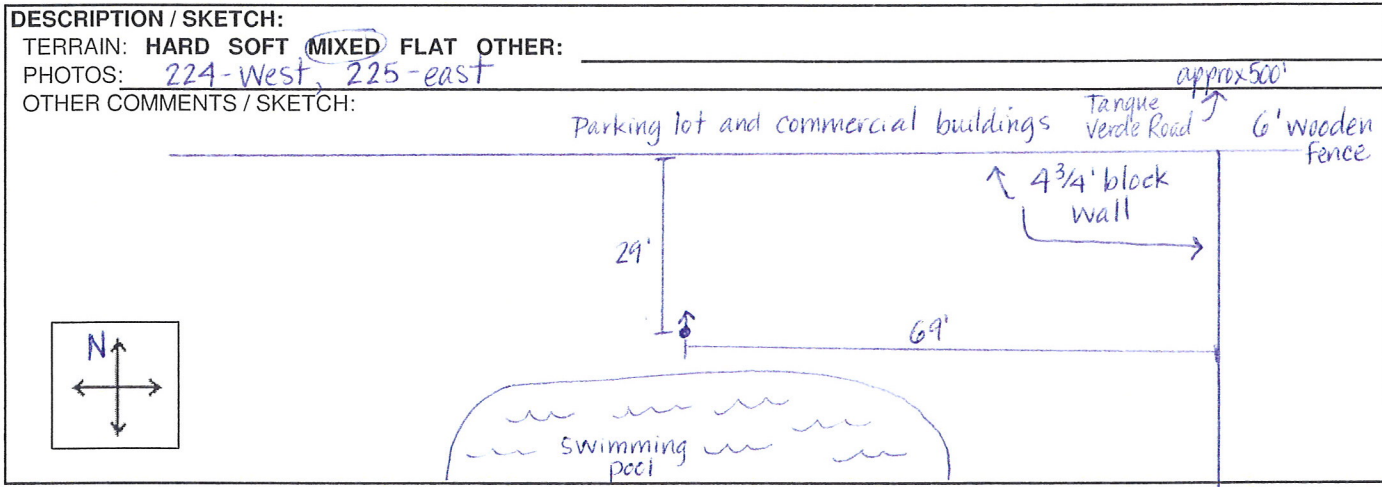 DESCRIPTION / SKETCH:
TERRAIN: HARD SOFT MIXED FLAT OTHER:
PHOTOS: 224-West, 225-east
OTHER COMMENTS / SKETCH:
approx 500'
Parking lot and commercial buildings
Tanque
Verde Road
6' wooden
fence
4 3/4' block
wall
29'
69'
N
Swimming
pool